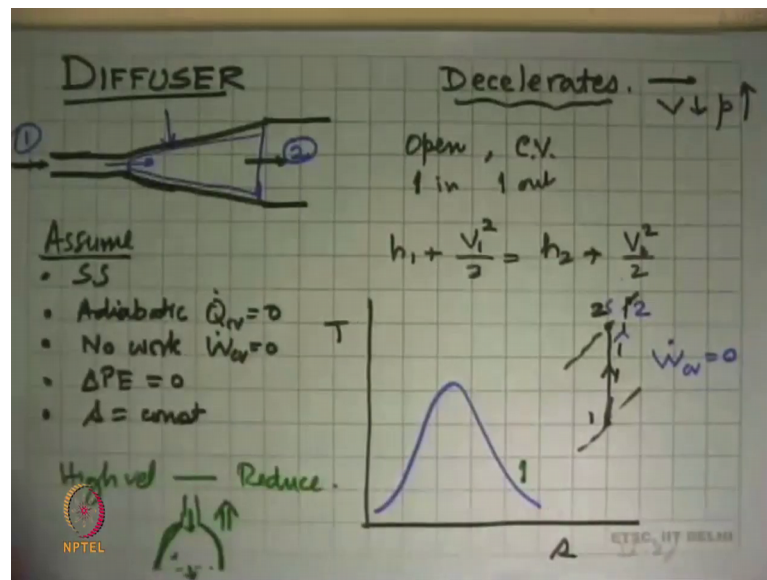 DIFFUSER
Decelerates. → V↓ p↑
① ②
Open, C.V.
1 in 1 out
Assume
• SS
• Adiabatic Q̇cv = 0
• No work Ẇcv = 0
• ΔPE = 0
• s = const
h₁ + V₁²/2 = h₂ + V₂²/2
T
2s 2
1
Ẇcv = 0
1
s
High vel — Reduce.
NPTEL
ETSC, IIT DELHI